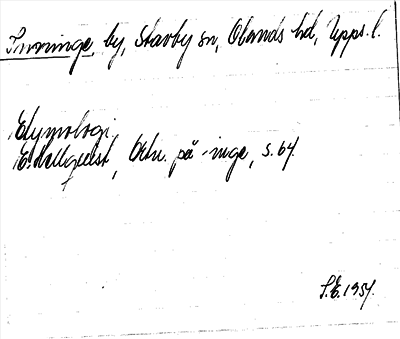 by, Stavby sn, Olands hd, Upps. l.
Etymologi
E. Hellquist, Ortn. på -inge, s. 64.
S.E. 1954.